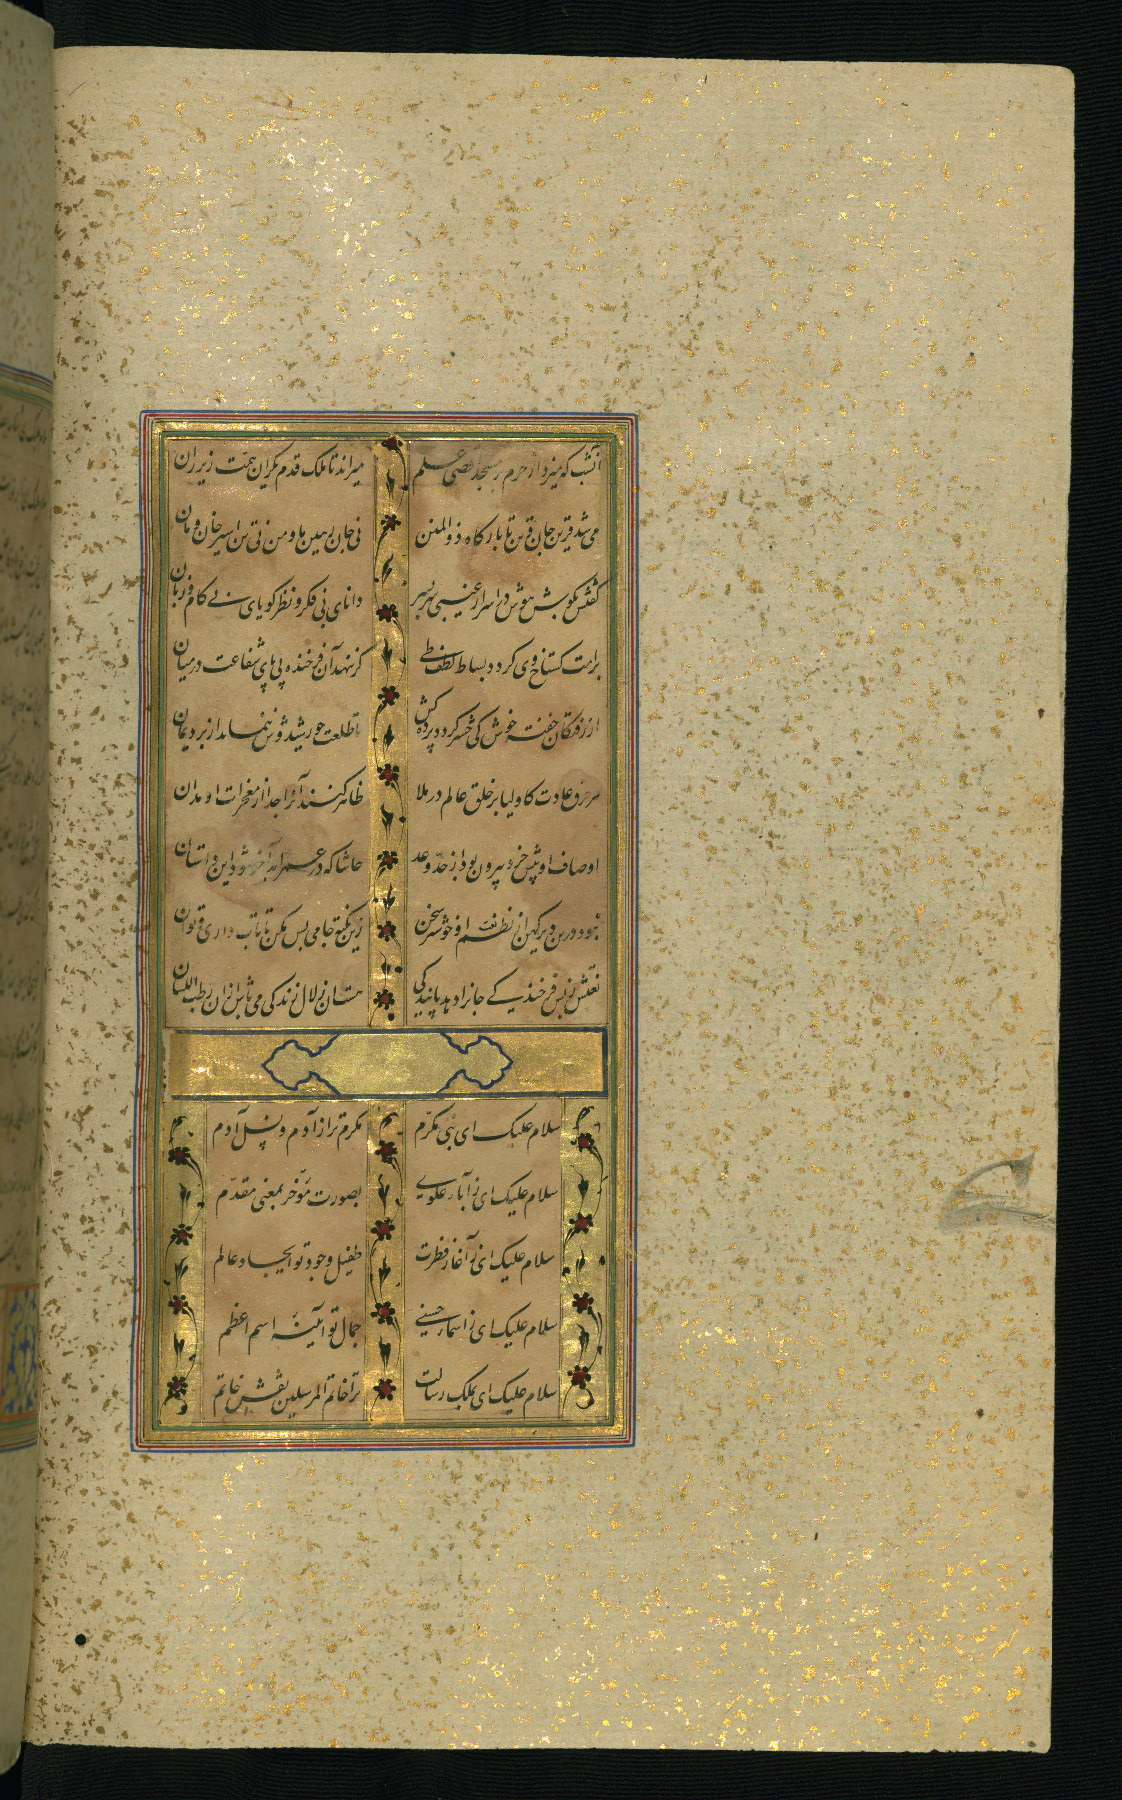 آنشب که میزد از حرم بر مسجد اقصی علم میراند تا ملک قدم یکران همت زیر ران
می شد قرین جان قرن تا بارگاه ذوالمنن نی جان رهین ما و من نی تن اسیر خان و مان
گفتش بگوش هوش در اسرار غیبی سربسر دانای بی فکر و نظر گویای بی کام و زبان
برامت گستاخ وی گردد بساط لطف طی گر ننهد آن فرخنده پی پای شفاعت در میان
از رفتگان خفته خوش کی حشر گردد پرده کش تا طلعت خورشیدوش ننماید از برد یمان
هر خرق عادت کاولیا بر خلق عالم در ملا ظاهر کنند آنرا جدا از معجزات او مدان
اوصاف او پیش خرد بیرون بود از حد و عد حاشا که در عمر ابد آخر شود این داستان
نبود درین دیر کهن از نظم نعت او خوشتر سخن زین نکته جامی بس مکن تا تاب داری و توان
نعتش ز بس فرخندگی جانرا دهد پایندگی هست آن زلال زندگی می باش ازان رطب اللسان
سلام علیک ای نبی مکرم مکرم تر از آدم و نسل آدم
سلام علیک ای ز آباء علوی بصورت مؤخر بمعنی مقدم
سلام علیک ای ز آغاز فطرت طفیل وجود تو ایجاد عالم
سلام علیک ای ز اسماء حسنی جمال تو آئینه اسم اعظم
سلام علیک ای بملک رسالت ترا خاتم المرسلین نقش خاتم